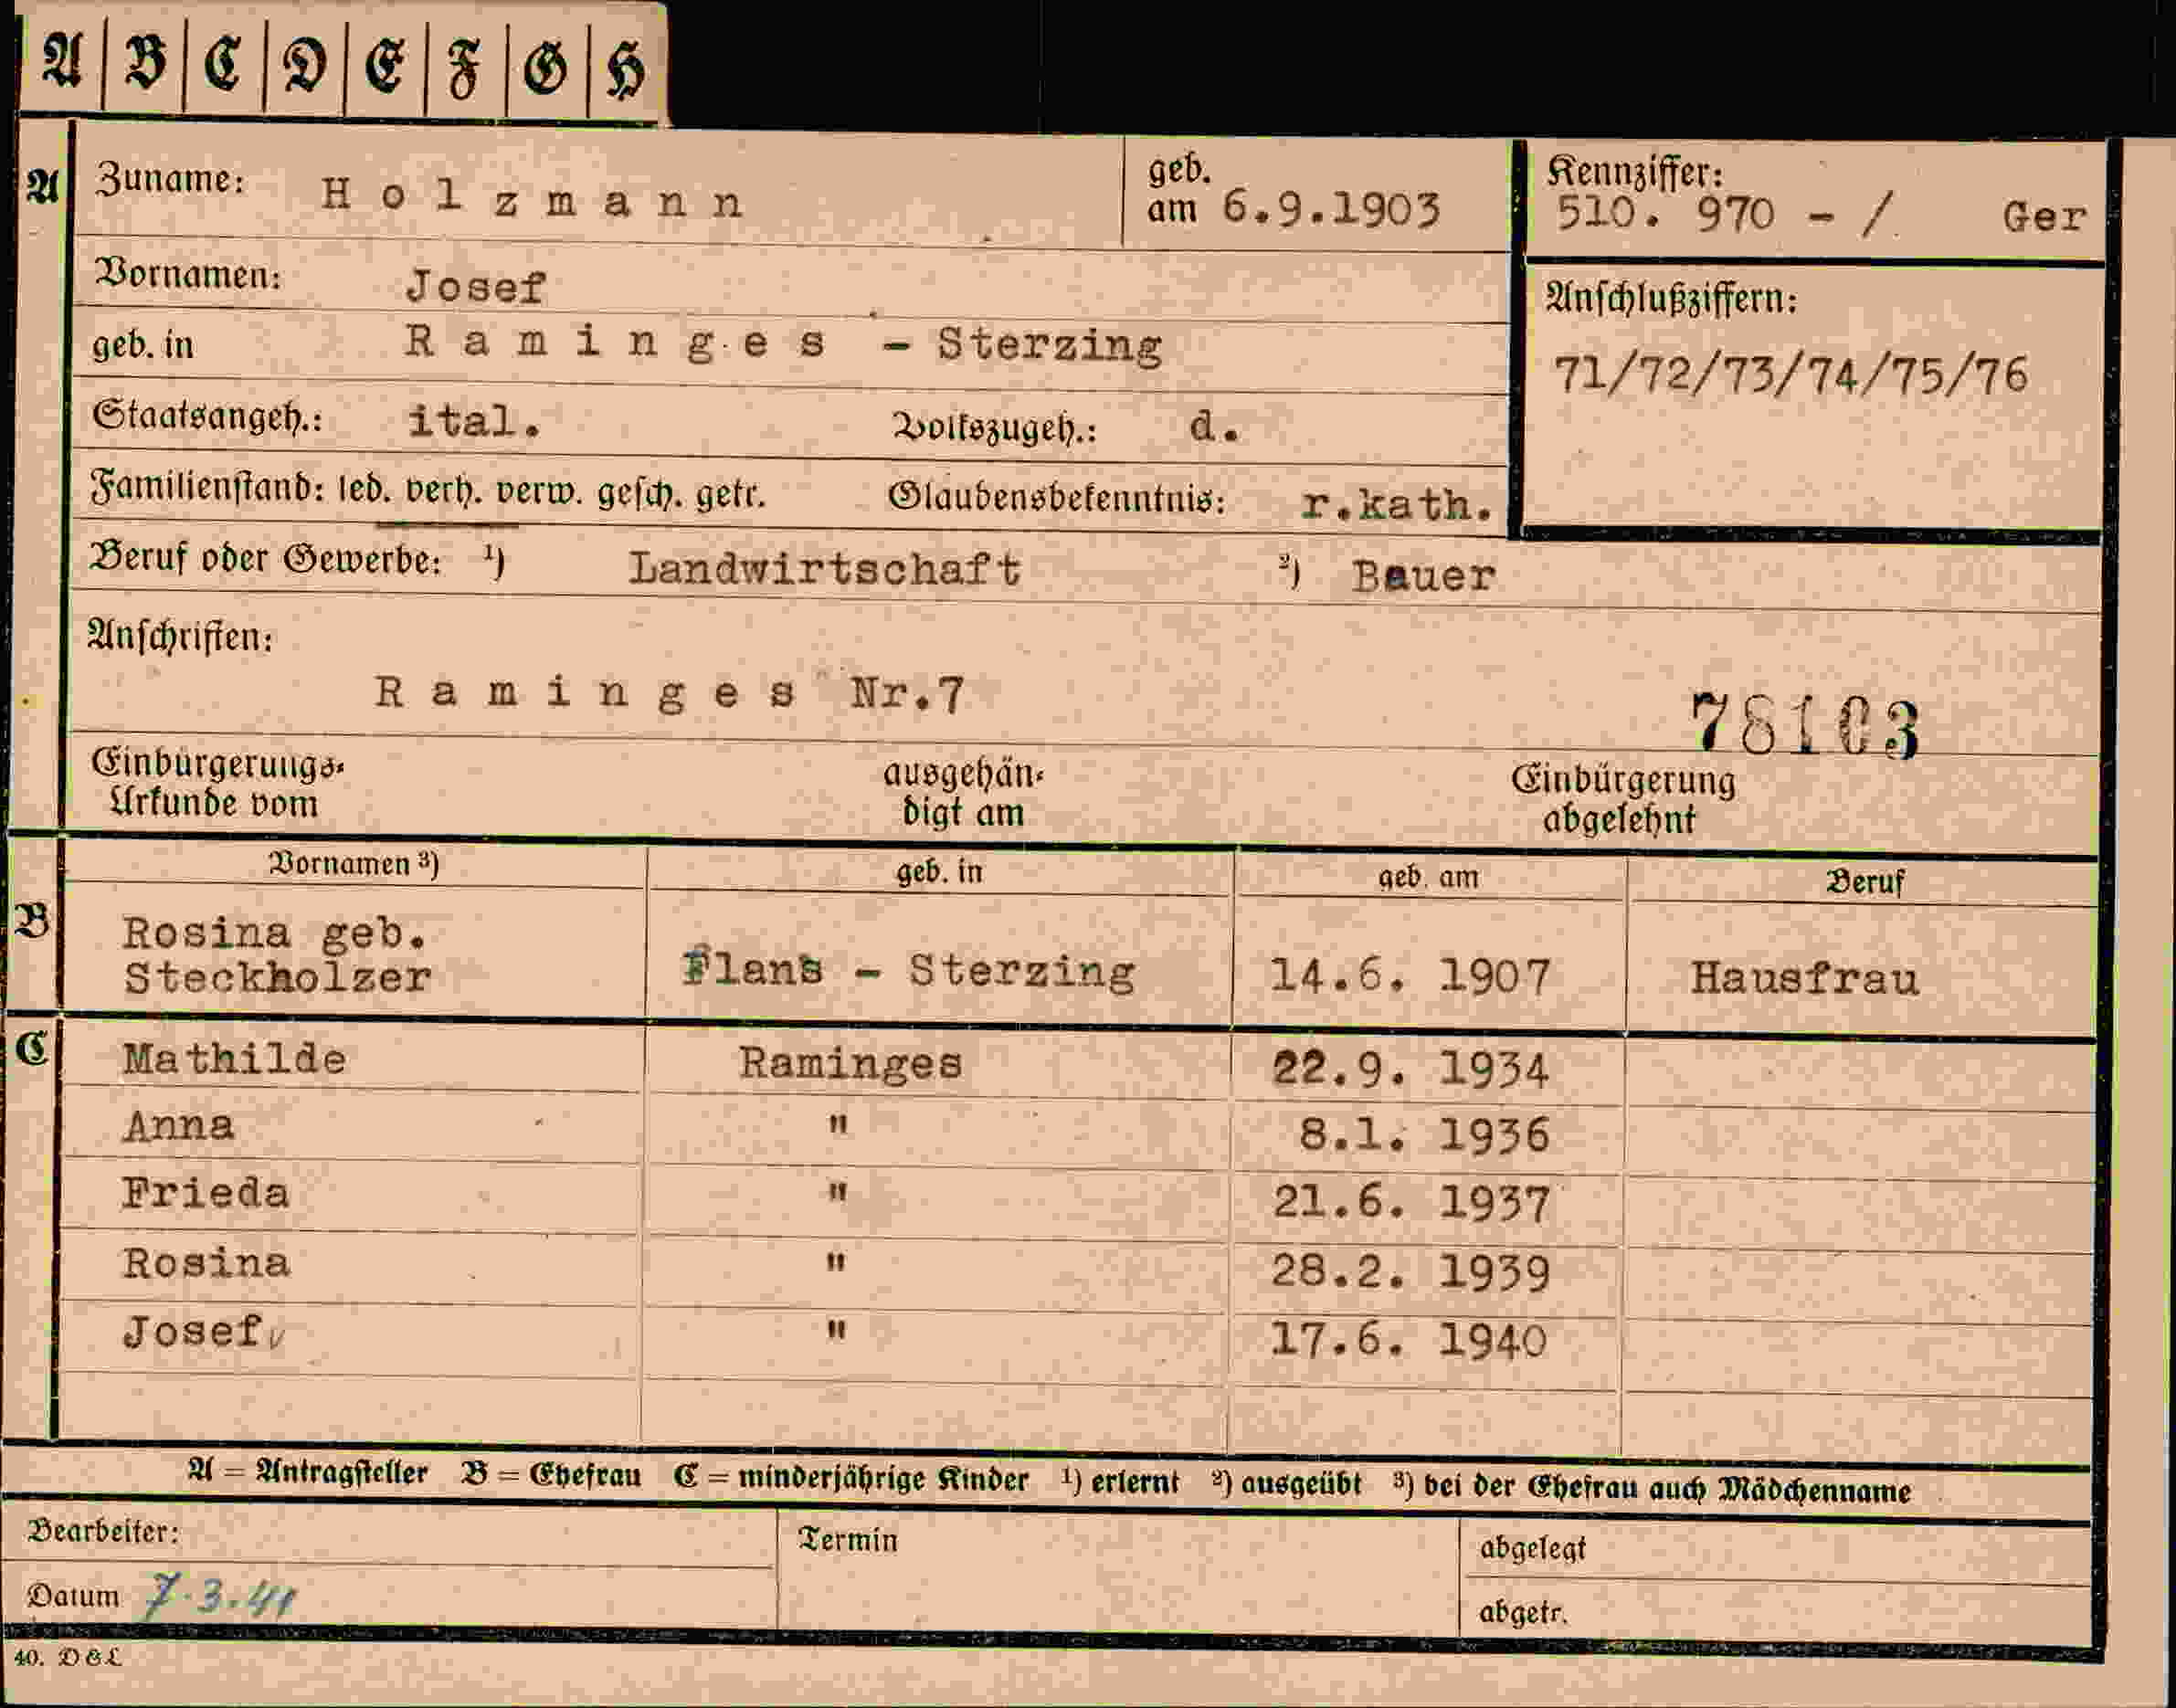 A | B | C | D | E | F | G | H
A Zuname: Holzmann geb. am 6.9.1903
Kennziffer: 510. 970 - / Ger
Vornamen: Josef
geb. in Raminges - Sterzing
Anschlußziffern:
71/72/73/74/75/76
Staatsangeh.: ital. Volkszugeh.: d.
Familienstand: led. verh. verw. gesch. getr. Glaubensbekenntnis: r.kath.
Beruf oder Gewerbe: ¹) Landwirtschaft ²) Bauer
Anschriften:
Raminges Nr.7
78103
Einbürgerungs-Urkunde vom ausgehändigt am Einbürgerung abgelehnt
Vornamen ³) geb. in geb. am Beruf
B Rosina geb.
Steckholzer Flans - Sterzing 14.6. 1907 Hausfrau
C Mathilde Raminges 22.9. 1934
Anna " 8.1. 1936
Frieda " 21.6. 1937
Rosina " 28.2. 1939
Josef " 17.6. 1940
A = Antragsteller B = Ehefrau C = minderjährige Kinder ¹) erlernt ²) ausgeübt ³) bei der Ehefrau auch Mädchenname
Bearbeiter: Termin abgelegt
Datum 7.3.41 abgetr.
40. D&L